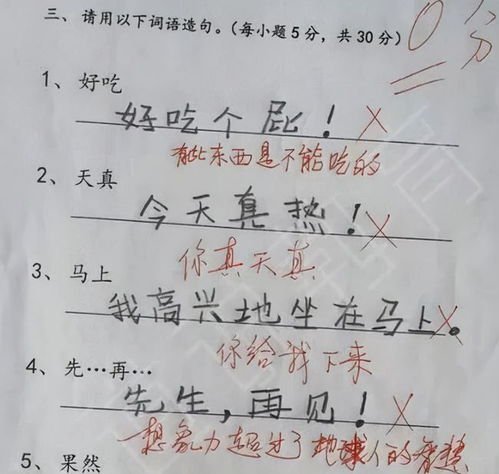 三、请用以下词语造句。(每小题5分，共30分) 0分
1、好吃
好吃个屁！
有些东西是不能吃的
2、天真
今天真热！
你真天真
3、马上
我高兴地坐在马上。
你给我下来
4、先…再…
先生，再见！
想象力超过了地球人的
5、果然